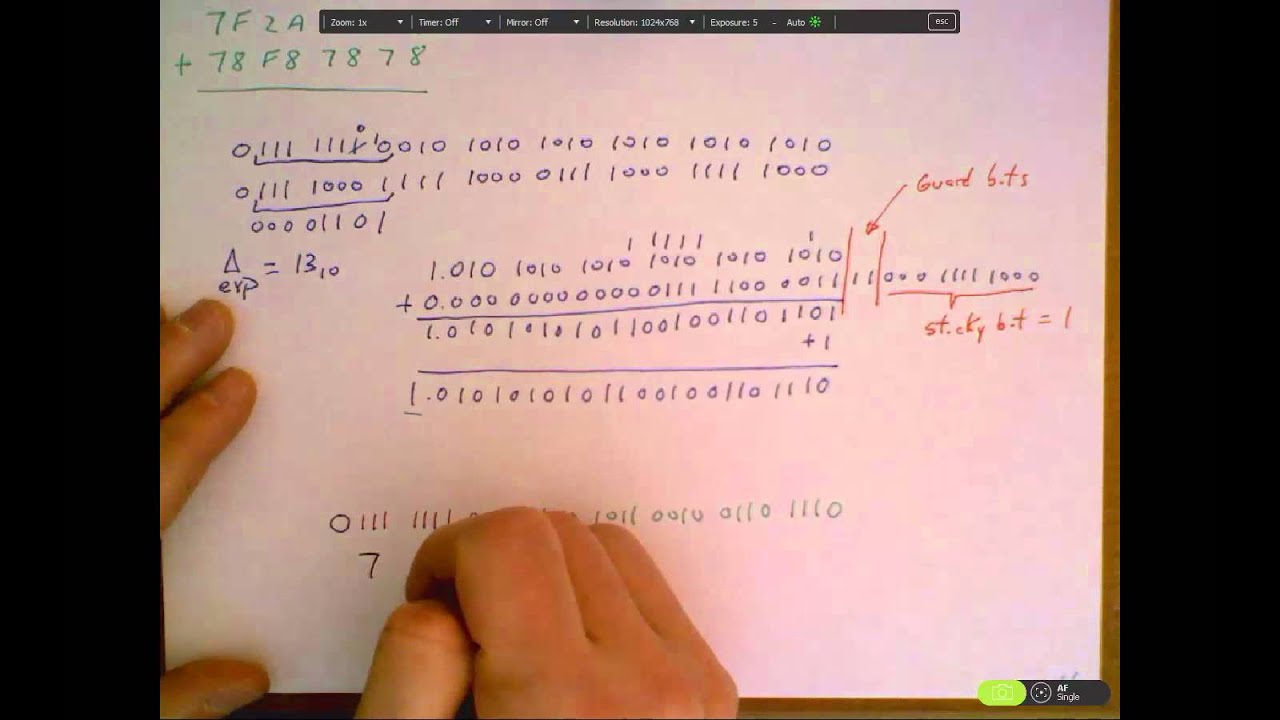 Zoom: 1x Timer: Off Mirror: Off Resolution: 1024x768 Exposure: 5 - Auto esc
7F 2A
+ 78 F8 78 78
0
0111 1111 0010 1010 1010 1010 1010 1010
0111 1000 1111 1000 0111 1000 1111 1000
0000 1101
Guard bits
Δ exp = 13₁₀
1 1111 1
1.010 1010 1010 1010 1010 1010
+ 0.000 0000 0000 0111 1100 0011 11 000 1111 1000
sticky bit = 1
1.01010101011001001101101
+1
1.01010101011001001101110
0111 1111 1011 0010 0110 1110
7
AF
Single